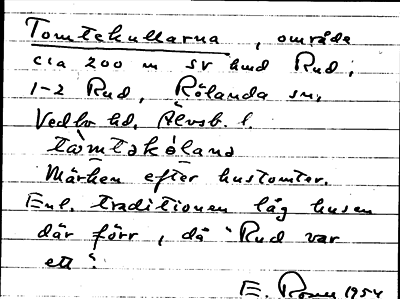 Tomtekullarna, område
cia 200 m SV hmd Rud,
1-2 Rud, Rölanda sn,
Vedbo hd. Älvsb. l.
Märken efter hustomter.
Enl. traditionen låg husen
där förr, då "Rud var
ett".
E. 1954